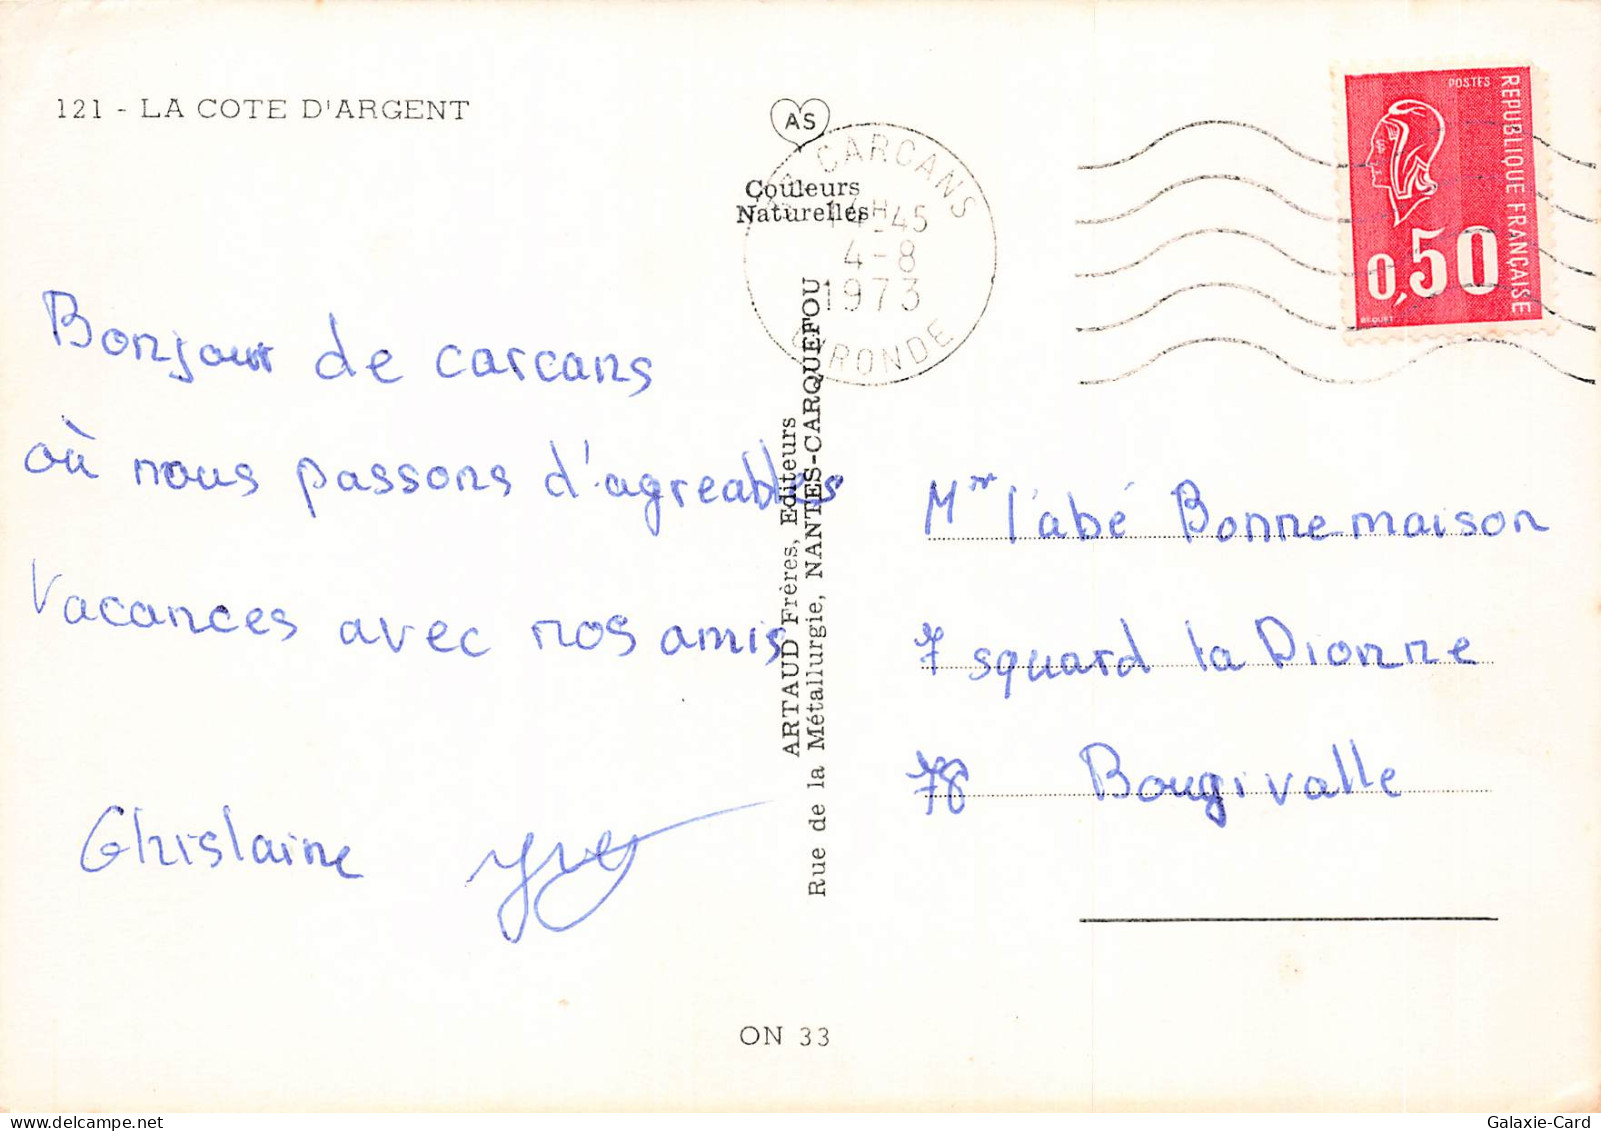 121 - LA COTE D'ARGENT
AS
Couleurs
Naturelles
CARCANS
14H45
4-8
1973
GIRONDE
POSTES
REPUBLIQUE FRANÇAISE
0,50
BEQUET
Bonjour de carcans
où nous passons d'agreables
Vacances avec nos amis
Ghislaine
ARTAUD Frères, Editeurs
Rue de la Métallurgie, NANTES-CARQUEFOU
Mr l'abé Bonnemaison
7 squard la Dionne
78 Bougivalle
ON 33
Galaxie-Card